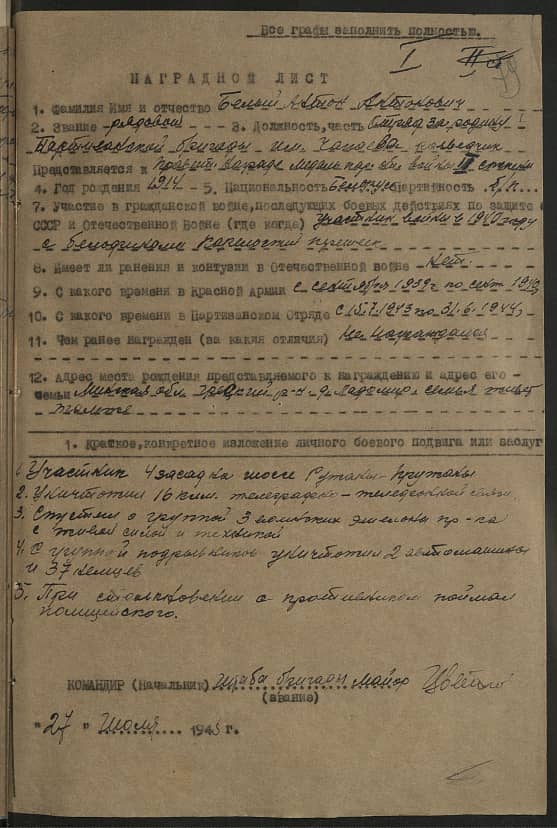 Все графы заполнить полностью.
I
НАГРАДНОЙ ЛИСТ
1. Фамилия Имя и отчество Белый Антон Антонович
2. Звание рядовой - 3. Должность, часть Отряд за родину
Партизанской бригады им. Чапаева
Представляется к правит. награде медаль II степени
4. Год рождения 1917 - 5. Национальность Партийность
7. Участие в гражданской войне, последующих боевых действиях по защите
СССР и Отечественной Войне (где когда) участник войны в 1940 году
с белофинами
8. Имеет ли ранения и контузии в Отечественной войне - нет.
9. С какого времени в Красной Армии с сентября 1939 г по сент 1940
10. С какого времени в Партизанском Отряде с 15.7.1943 по 31.6.1944
11. Чем ранее награжден (за какия отличия) Не награждался
12. Адрес места рождения представляемого к награждению и адрес его
семьи Минская обл. р-н д. семья живет
там же
1. Краткое, конкретное изложение личного боевого подвига или заслуг
1. Участник 4 засад на шоссе
2. Уничтожил 16 клм. телеграфно-телефонной связи.
3. Спустил с группой 3 эшелоны пр-ка
с живой силой и техникой
4. С группой подрывников уничтожил 2 автомашины
и 37 немцев
5. При столкновении с противником поймал
полицейского.
КОМАНДИР (Начальник) штаба бригады майор
(звание)
"27" Июля 1948 г.